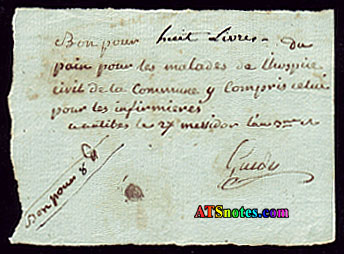 Bon pour huit Livres du
pain pour les malades de Lhospice
civil de la Commune y Compris celui
pour les infirmieres
le 27 messidor L'an 3me
Bon pour 8 ₶
ATSnotes.com